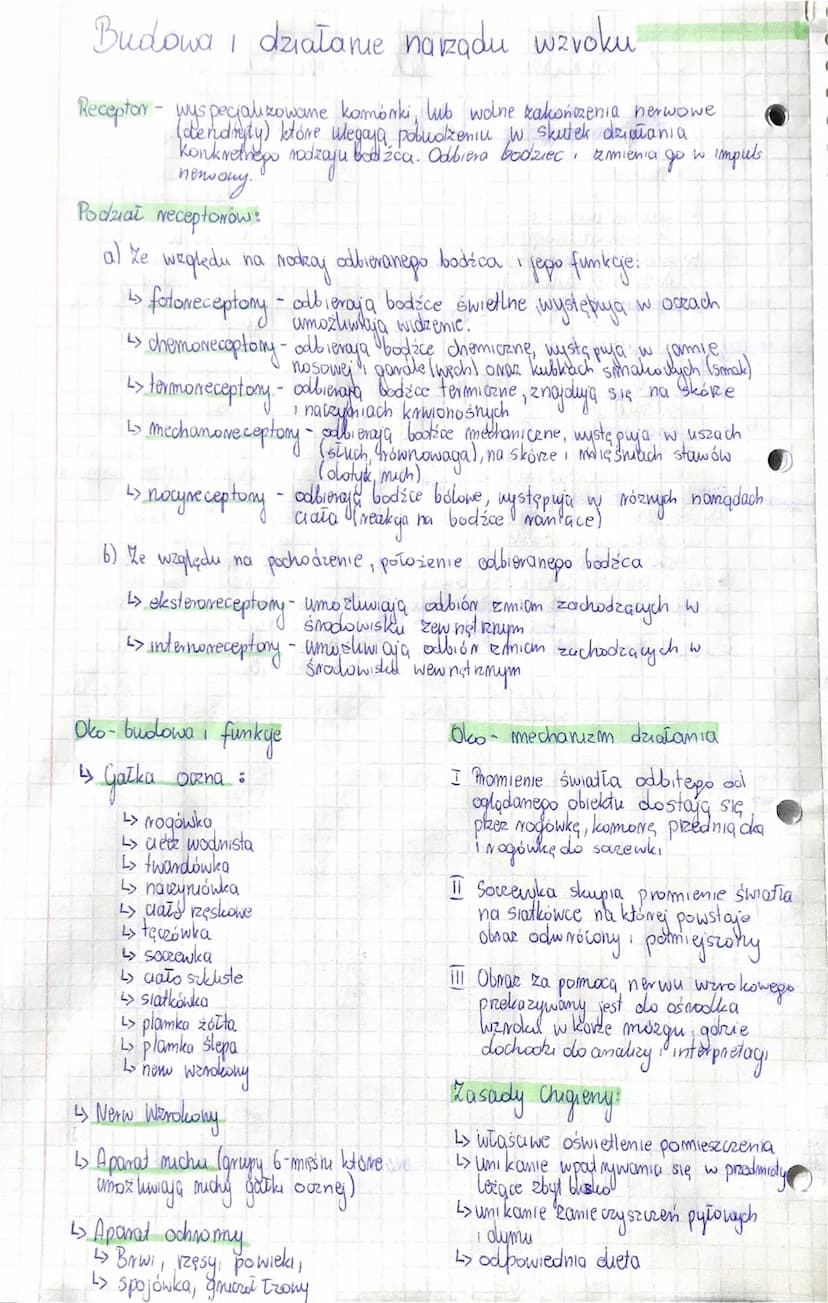 Budowa i działanie narządu wzroku
Receptor - wyspecjalizowane komórki, lub wolne zakończenia nerwowe
(dendryty) które ulegają pobudzeniu w skutek działania
konkretnego rodzaju bodźca. Odbiera bodziec i zmienia go w impuls
nerwowy.
Podział receptorów:
a) Ze względu na rodzaj odbieranego bodźca i jego funkcje:
↳ fotoreceptory - odbierają bodźce świetlne, występują w oczach
umożliwiają widzenie.
↳ chemoreceptory - odbierają bodźce chemiczne, występują w jamie
nosowej i gardle (węch) oraz kubkach smakowych (smak)
↳ termoreceptory - odbierają bodźce termiczne, znajdują się na skórze
i naczyniach krwionośnych
↳ mechanoreceptory - odbierają bodźce mechaniczne, występują w uszach
(słuch, równowaga), na skórze i mięśniach stawów
(dotyk, ruch)
↳ nocyreceptory - odbierają bodźce bólowe, występują w różnych narządach
ciała (reakcja na bodźce raniące)
b) Ze względu na pochodzenie, położenie odbieranego bodźca
↳ eksteroreceptory - umożliwiają odbiór zmian zachodzących w
środowisku zewnętrznym
↳ internoreceptory - umożliwiają odbiór zmian zachodzących w
środowisku wewnętrznym
Oko - budowa i funkcje
↳ Gałka oczna :
↳ rogówka
↳ ciecz wodnista
↳ twardówka
↳ naczyniówka
↳ ciało rzęskowe
↳ tęczówka
↳ soczewka
↳ ciało szkliste
↳ siatkówka
↳ plamka żółta
↳ plamka ślepa
↳ nerw wzrokowy
↳ Nerw Wzrokowy
↳ Aparat ruchu (grupy 6-mięśni które
umożliwiają ruchy gałki ocznej)
↳ Aparat ochronny
↳ Brwi, rzęsy, powieki,
↳ spojówka, gruczoł łzowy
Oko - mechanizm działania
I Promienie światła odbitego od
oglądanego obiektu dostają się
przez rogówkę, komorę przednią oka
i rogówkę do soczewki
II Soczewka skupia promienie światła
na siatkówce na której powstaje
obraz odwrócony i pomniejszony
III Obraz za pomocą nerwu wzrokowego
przekazywany jest do ośrodka
wzroku w korze mózgu, gdzie
dochodzi do analizy i interpretacji
Zasady Chigieny:
↳ właściwe oświetlenie pomieszczenia
↳ unikanie wpatrywania się w przedmioty
leżące zbyt blisko
↳ unikanie zanieczyszczeń pyłowych
i dymu
↳ odpowiednia dieta